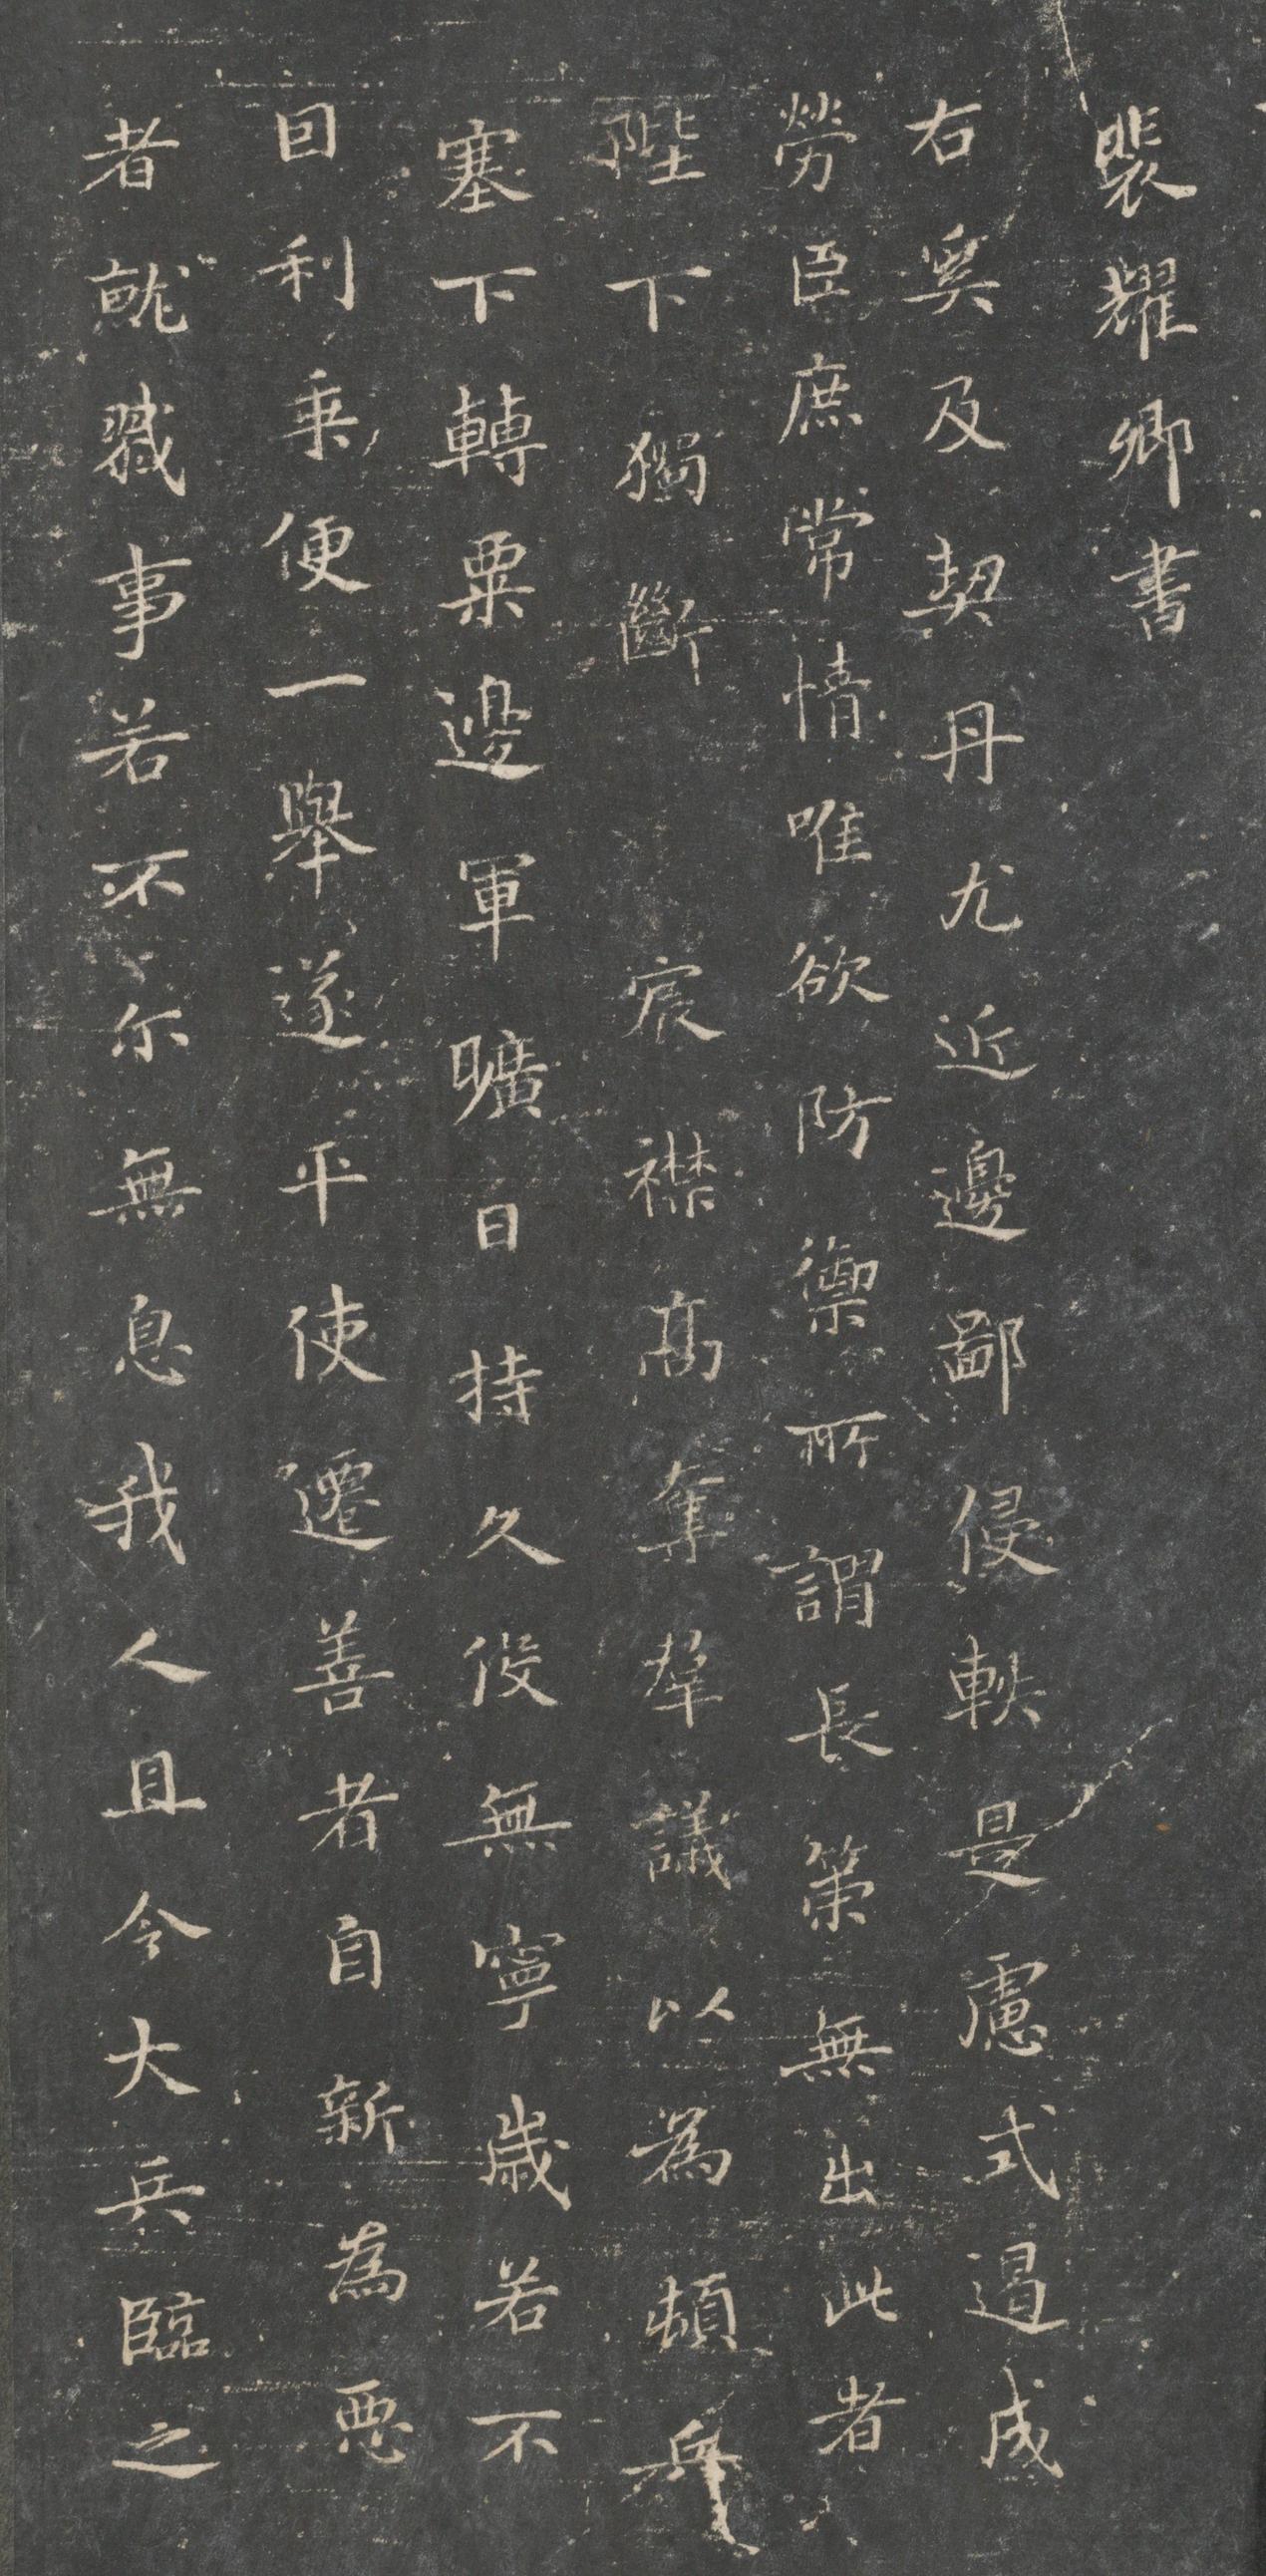 裴耀卿書
右奚及契丹尤近邊鄙侵軼是慮式遏成
勞臣庶常情唯欲防禦所謂長策無出此者
陛下獨斷宸襟高奪羣議以為頓兵
塞下轉粟邊軍曠日持久役無寧歲若不
因利乗便一舉遂平使遷善者自新為惡
者就戮事若不尔無息我人且今大兵臨之